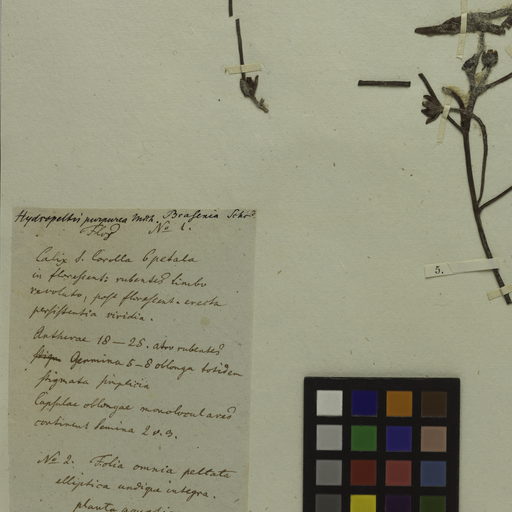 Hydropeltis purpurea Mich. Brasenia Schr
Flos No 1.
Calix s. Corolla 6 petala
in florescentis rubentes limbo
revoluto, post florescent. erecta
persistentia viridia.
Antherae 18 — 25. atro rubentes
Germina 5-8 oblonga totidem
stigmata simplicia
Capsulae oblongae monoloculares
continent semina 2 v. 3.
No 2. Folia omnia peltata
elliptica undique integra.
planta
5.